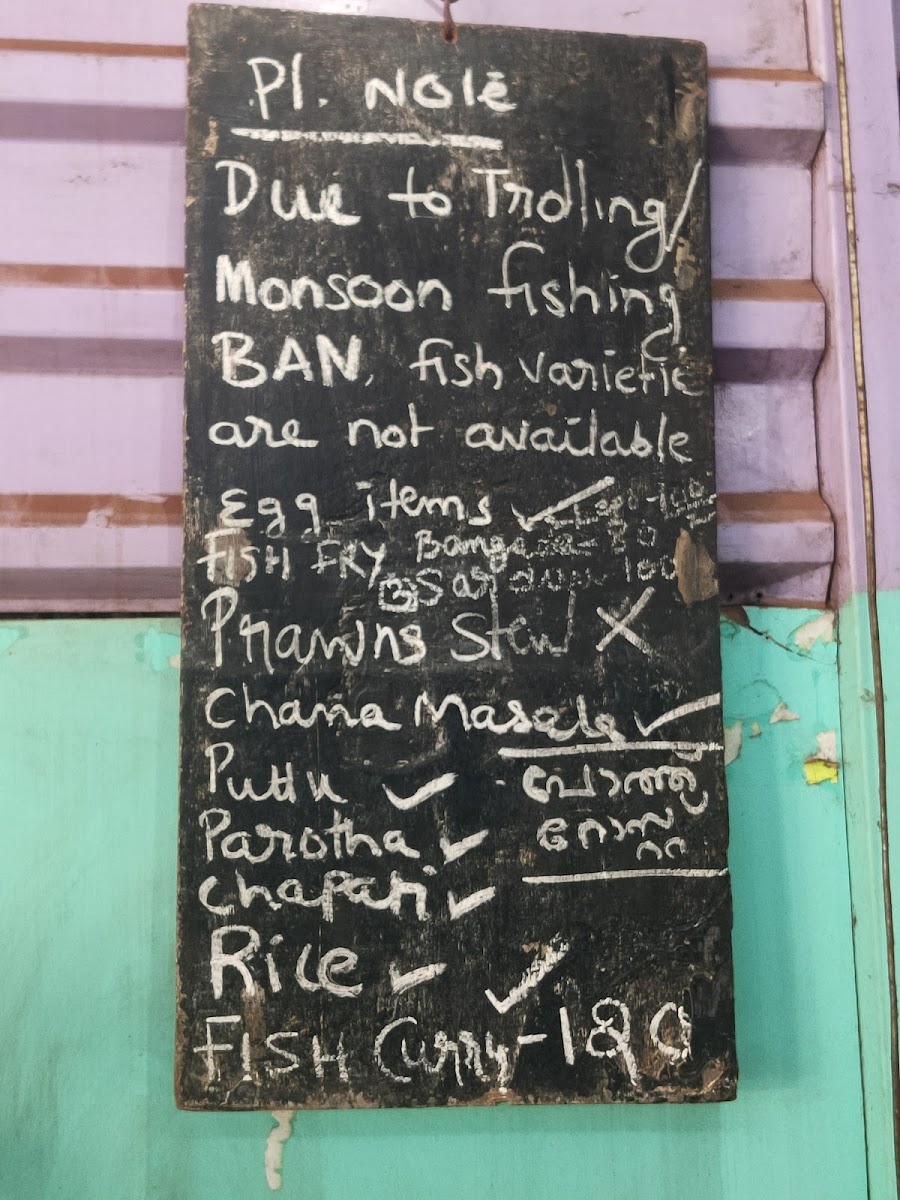 Pl. Note
Due to Trolling/
Monsoon fishing
BAN, fish varietie
are not available
Egg items ✓
FISH FRY
Prawns Stew X
Chana Masala ✓
Puttu ✓
Parotha ✓
Chapati ✓
പോത്തു
റോസ്റ്റ്
Rice ✓
✓
FISH Curry - 120